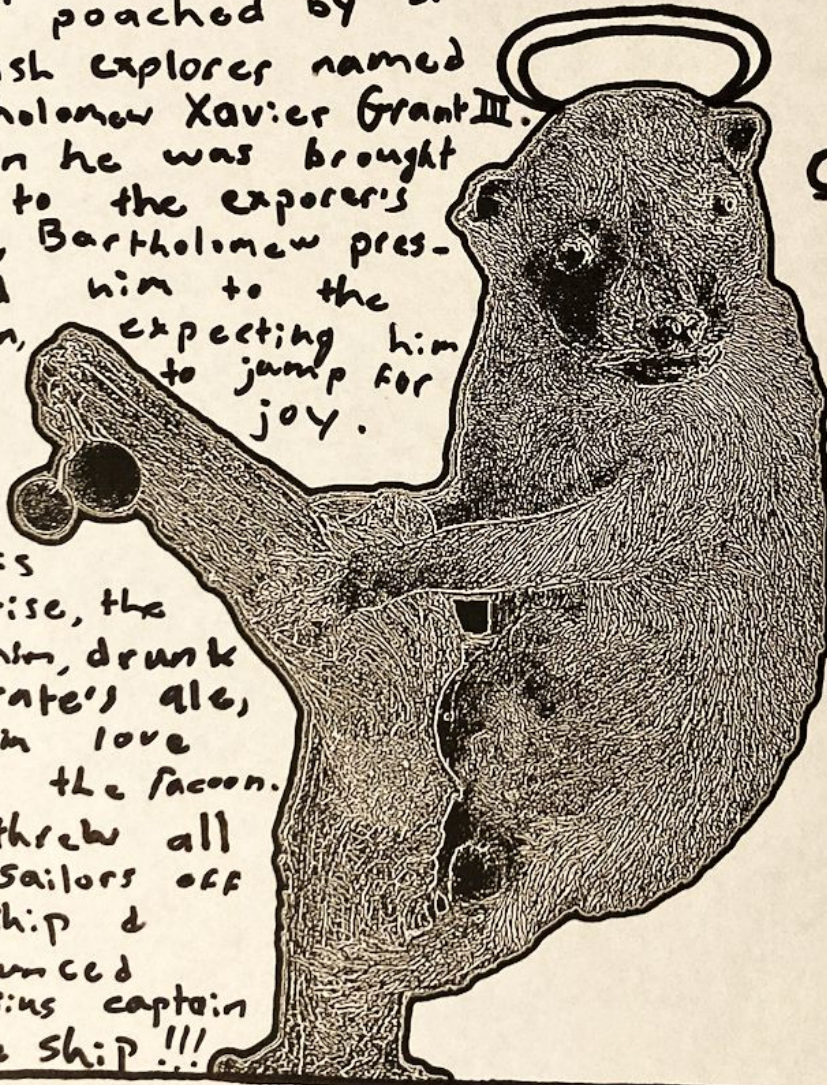 poached by
explorer named
Xavier Grant III.
he was brought
to the exporer's
Bartholomew pres-
him to the
expecting him
to jump for
joy.
the
drunk
ale,
love
the racoon.
threw all
sailors off
ship &
captain
ship!!!